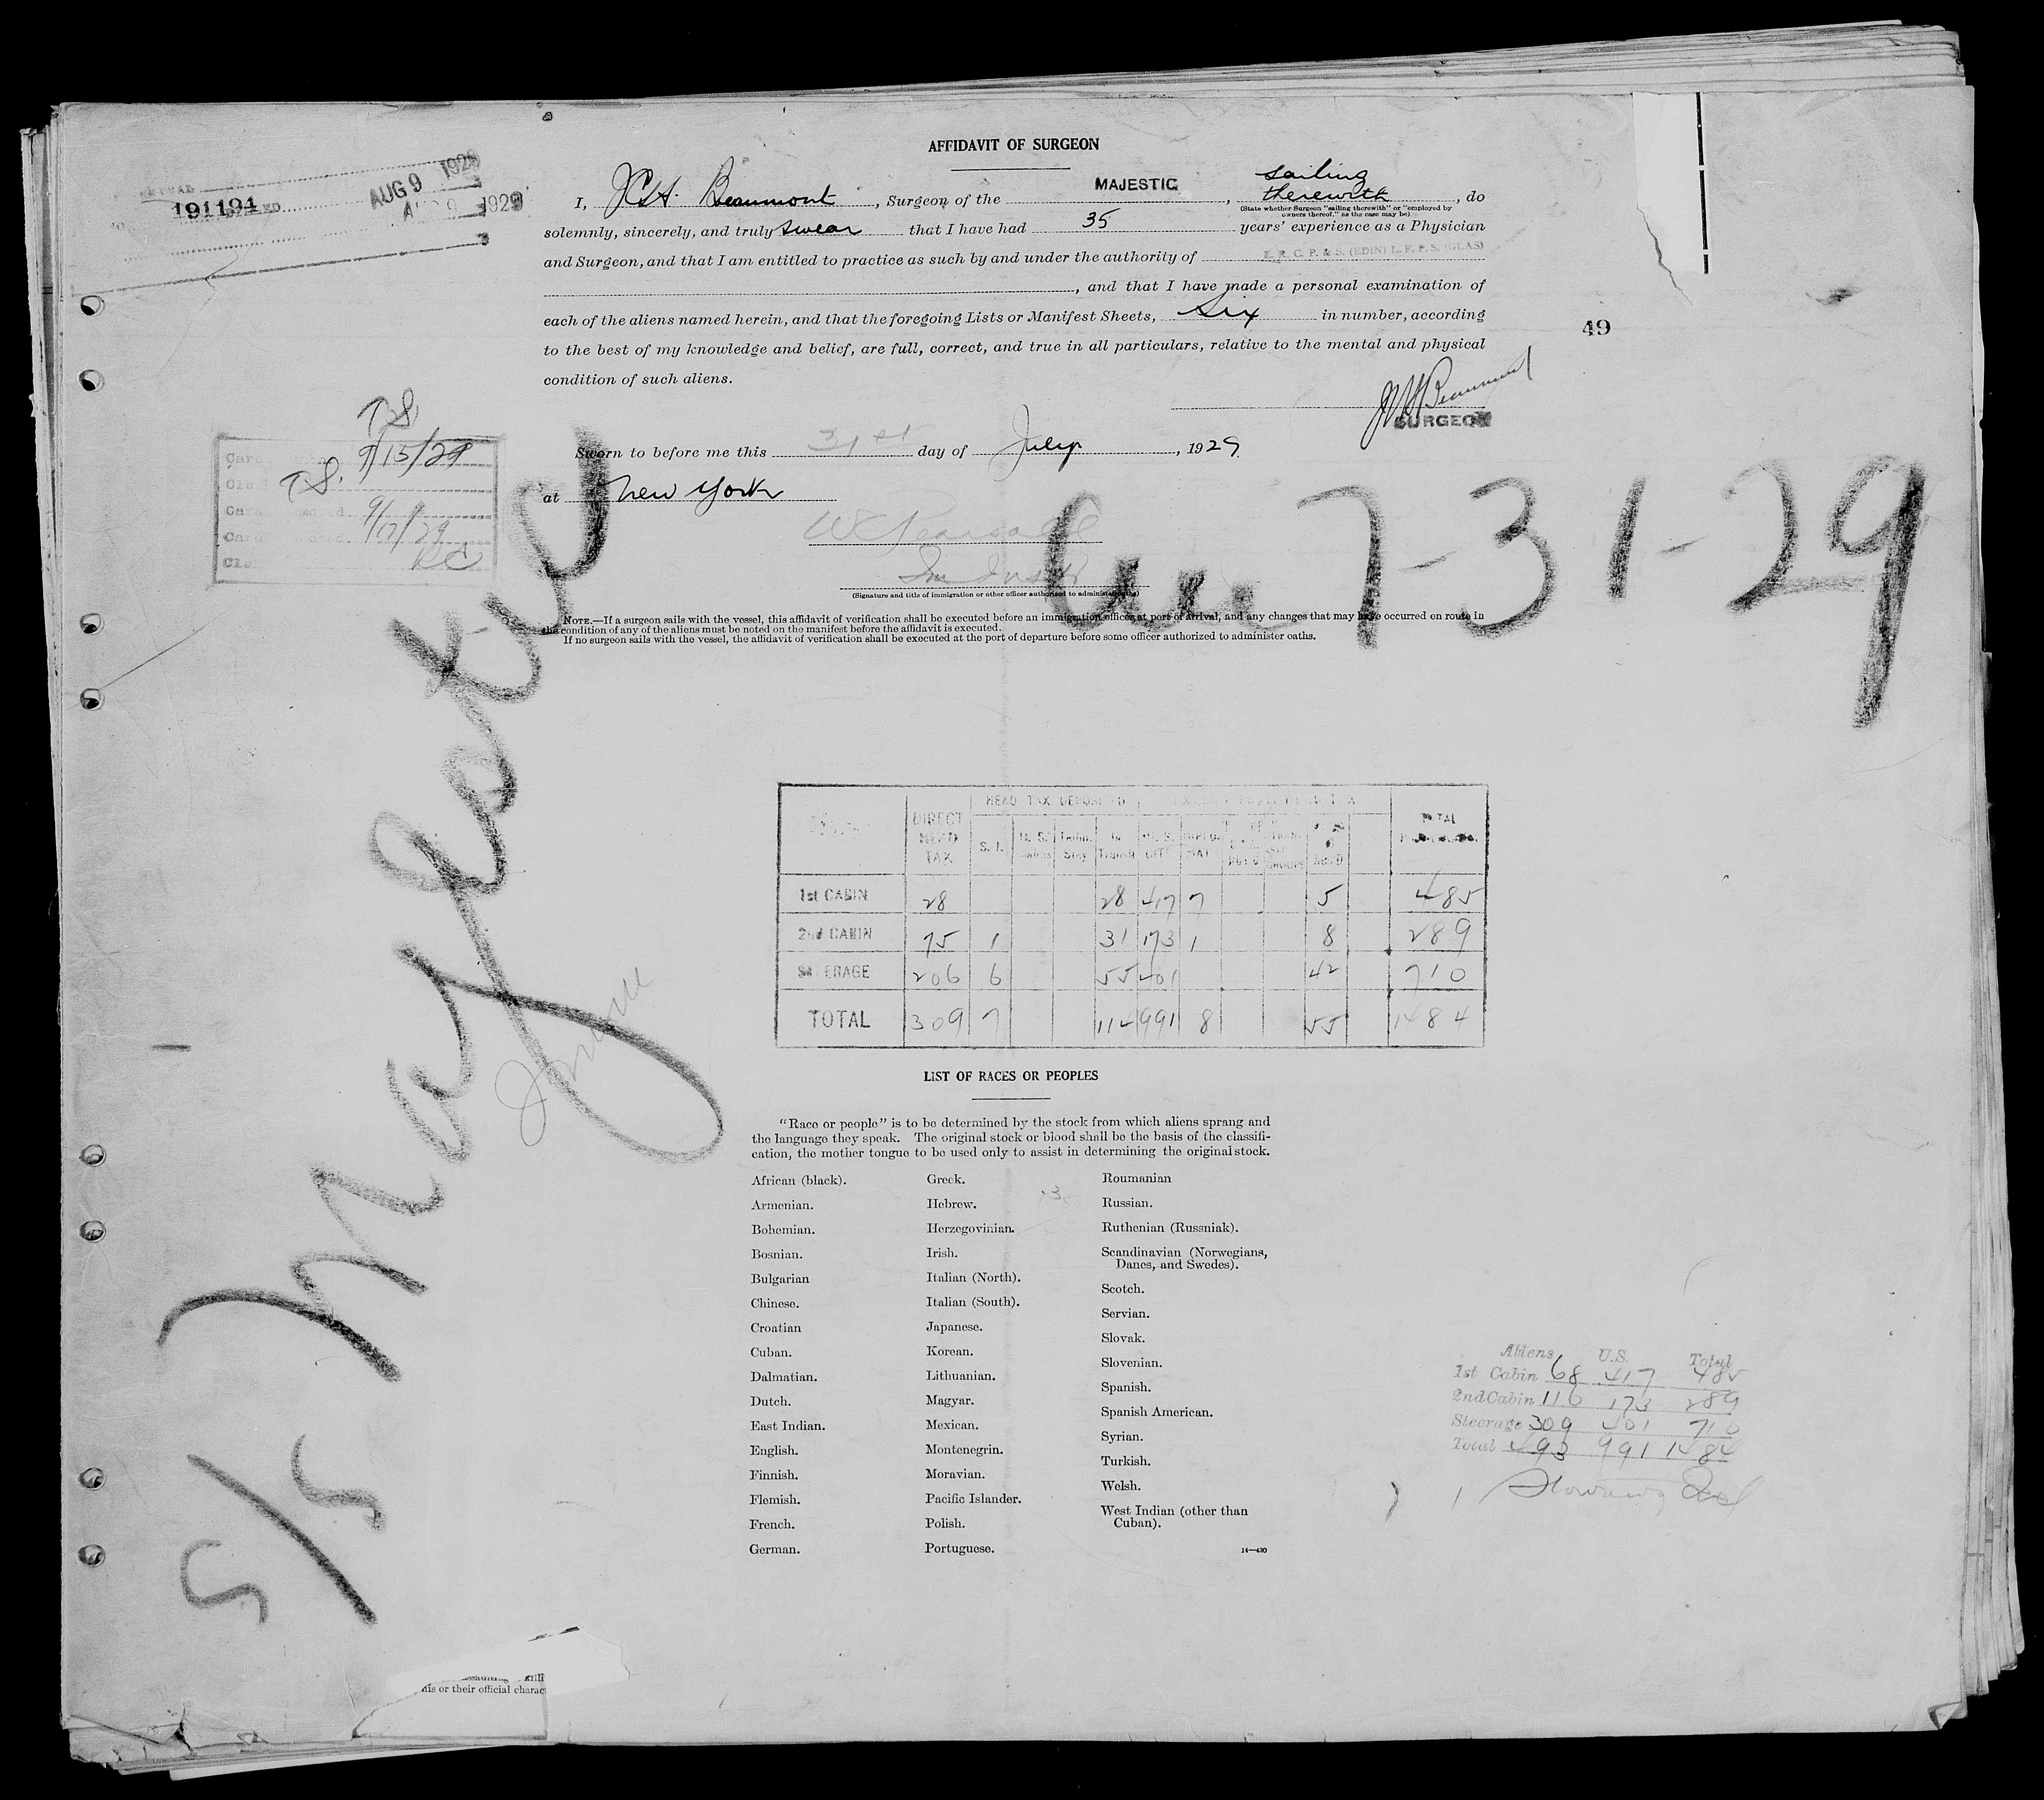 AFFIDAVIT OF SURGEON
191194
AUG 9 1929
1929
I, J C H. Beaumont, Surgeon of the MAJESTIC, sailing therewith, do
(State whether Surgeon "sailing therewith" or "employed by
owners thereof," as the case may be)
solemnly, sincerely, and truly swear that I have had 35 years' experience as a Physician
and Surgeon, and that I am entitled to practice as such by and under the authority of L. R. C. P. & S. (EDIN) L. F. P. S. (GLAS)
, and that I have made a personal examination of
each of the aliens named herein, and that the foregoing Lists or Manifest Sheets, Six in number, according
to the best of my knowledge and belief, are full, correct, and true in all particulars, relative to the mental and physical
condition of such aliens.
49
SURGEON
Sworn to before me this 31st day of July, 1929
at New York
(Signature and title of immigration or other officer authorized to administer oaths)
NOTE.—If a surgeon sails with the vessel, this affidavit of verification shall be executed before an immigration officer at port of arrival, and any changes that may have occurred en route in
the condition of any of the aliens must be noted on the manifest before the affidavit is executed.
If no surgeon sails with the vessel, the affidavit of verification shall be executed at the port of departure before some officer authorized to administer oaths.
T.S.
9/15/29
T.S.
9/17/29
7-31-29
S/S Majestic
HEAD TAX DEPOSITED
DIRECT HEAD TAX S. I. In Transit U. S. CIT. TOTAL
1st CABIN 28 28 417 7 5 485
2nd CABIN 75 1 31 173 1 8 289
STEERAGE 206 6 55 401 42 710
TOTAL 309 7 114 991 8 55 1484
LIST OF RACES OR PEOPLES
"Race or people" is to be determined by the stock from which aliens sprang and
the language they speak. The original stock or blood shall be the basis of the classifi-
cation, the mother tongue to be used only to assist in determining the original stock.
African (black).
Armenian.
Bohemian.
Bosnian.
Bulgarian
Chinese.
Croatian
Cuban.
Dalmatian.
Dutch.
East Indian.
English.
Finnish.
Flemish.
French.
German.
Greek.
Hebrew.
Herzegovinian.
Irish.
Italian (North).
Italian (South).
Japanese.
Korean.
Lithuanian.
Magyar.
Mexican.
Montenegrin.
Moravian.
Pacific Islander.
Polish.
Portuguese.
Roumanian
Russian.
Ruthenian (Russniak).
Scandinavian (Norwegians,
Danes, and Swedes).
Scotch.
Servian.
Slovak.
Slovenian.
Spanish.
Spanish American.
Syrian.
Turkish.
Welsh.
West Indian (other than
Cuban).
14—430
Aliens U.S. Total
1st Cabin 68 417 485
2nd Cabin 116 173 289
Steerage 309 401 710
Total 493 991 1484
1 Stowaway
his or their official charac